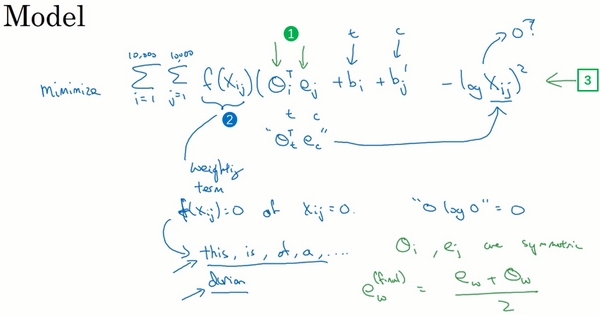 Model
minimize 10,000 Σ i=1 10,000 Σ j=1 f(Xij) (θi^T ej + bi + bj' - log Xij)^2
1 t c 0?
3
2 t c
"θt^T ec"
weighting term
f(Xij)=0 if Xij=0. "0 log 0" = 0
this, is, of, a, .... θi, ej are symmetric
durian
ew^(final) = (ew + θw) / 2